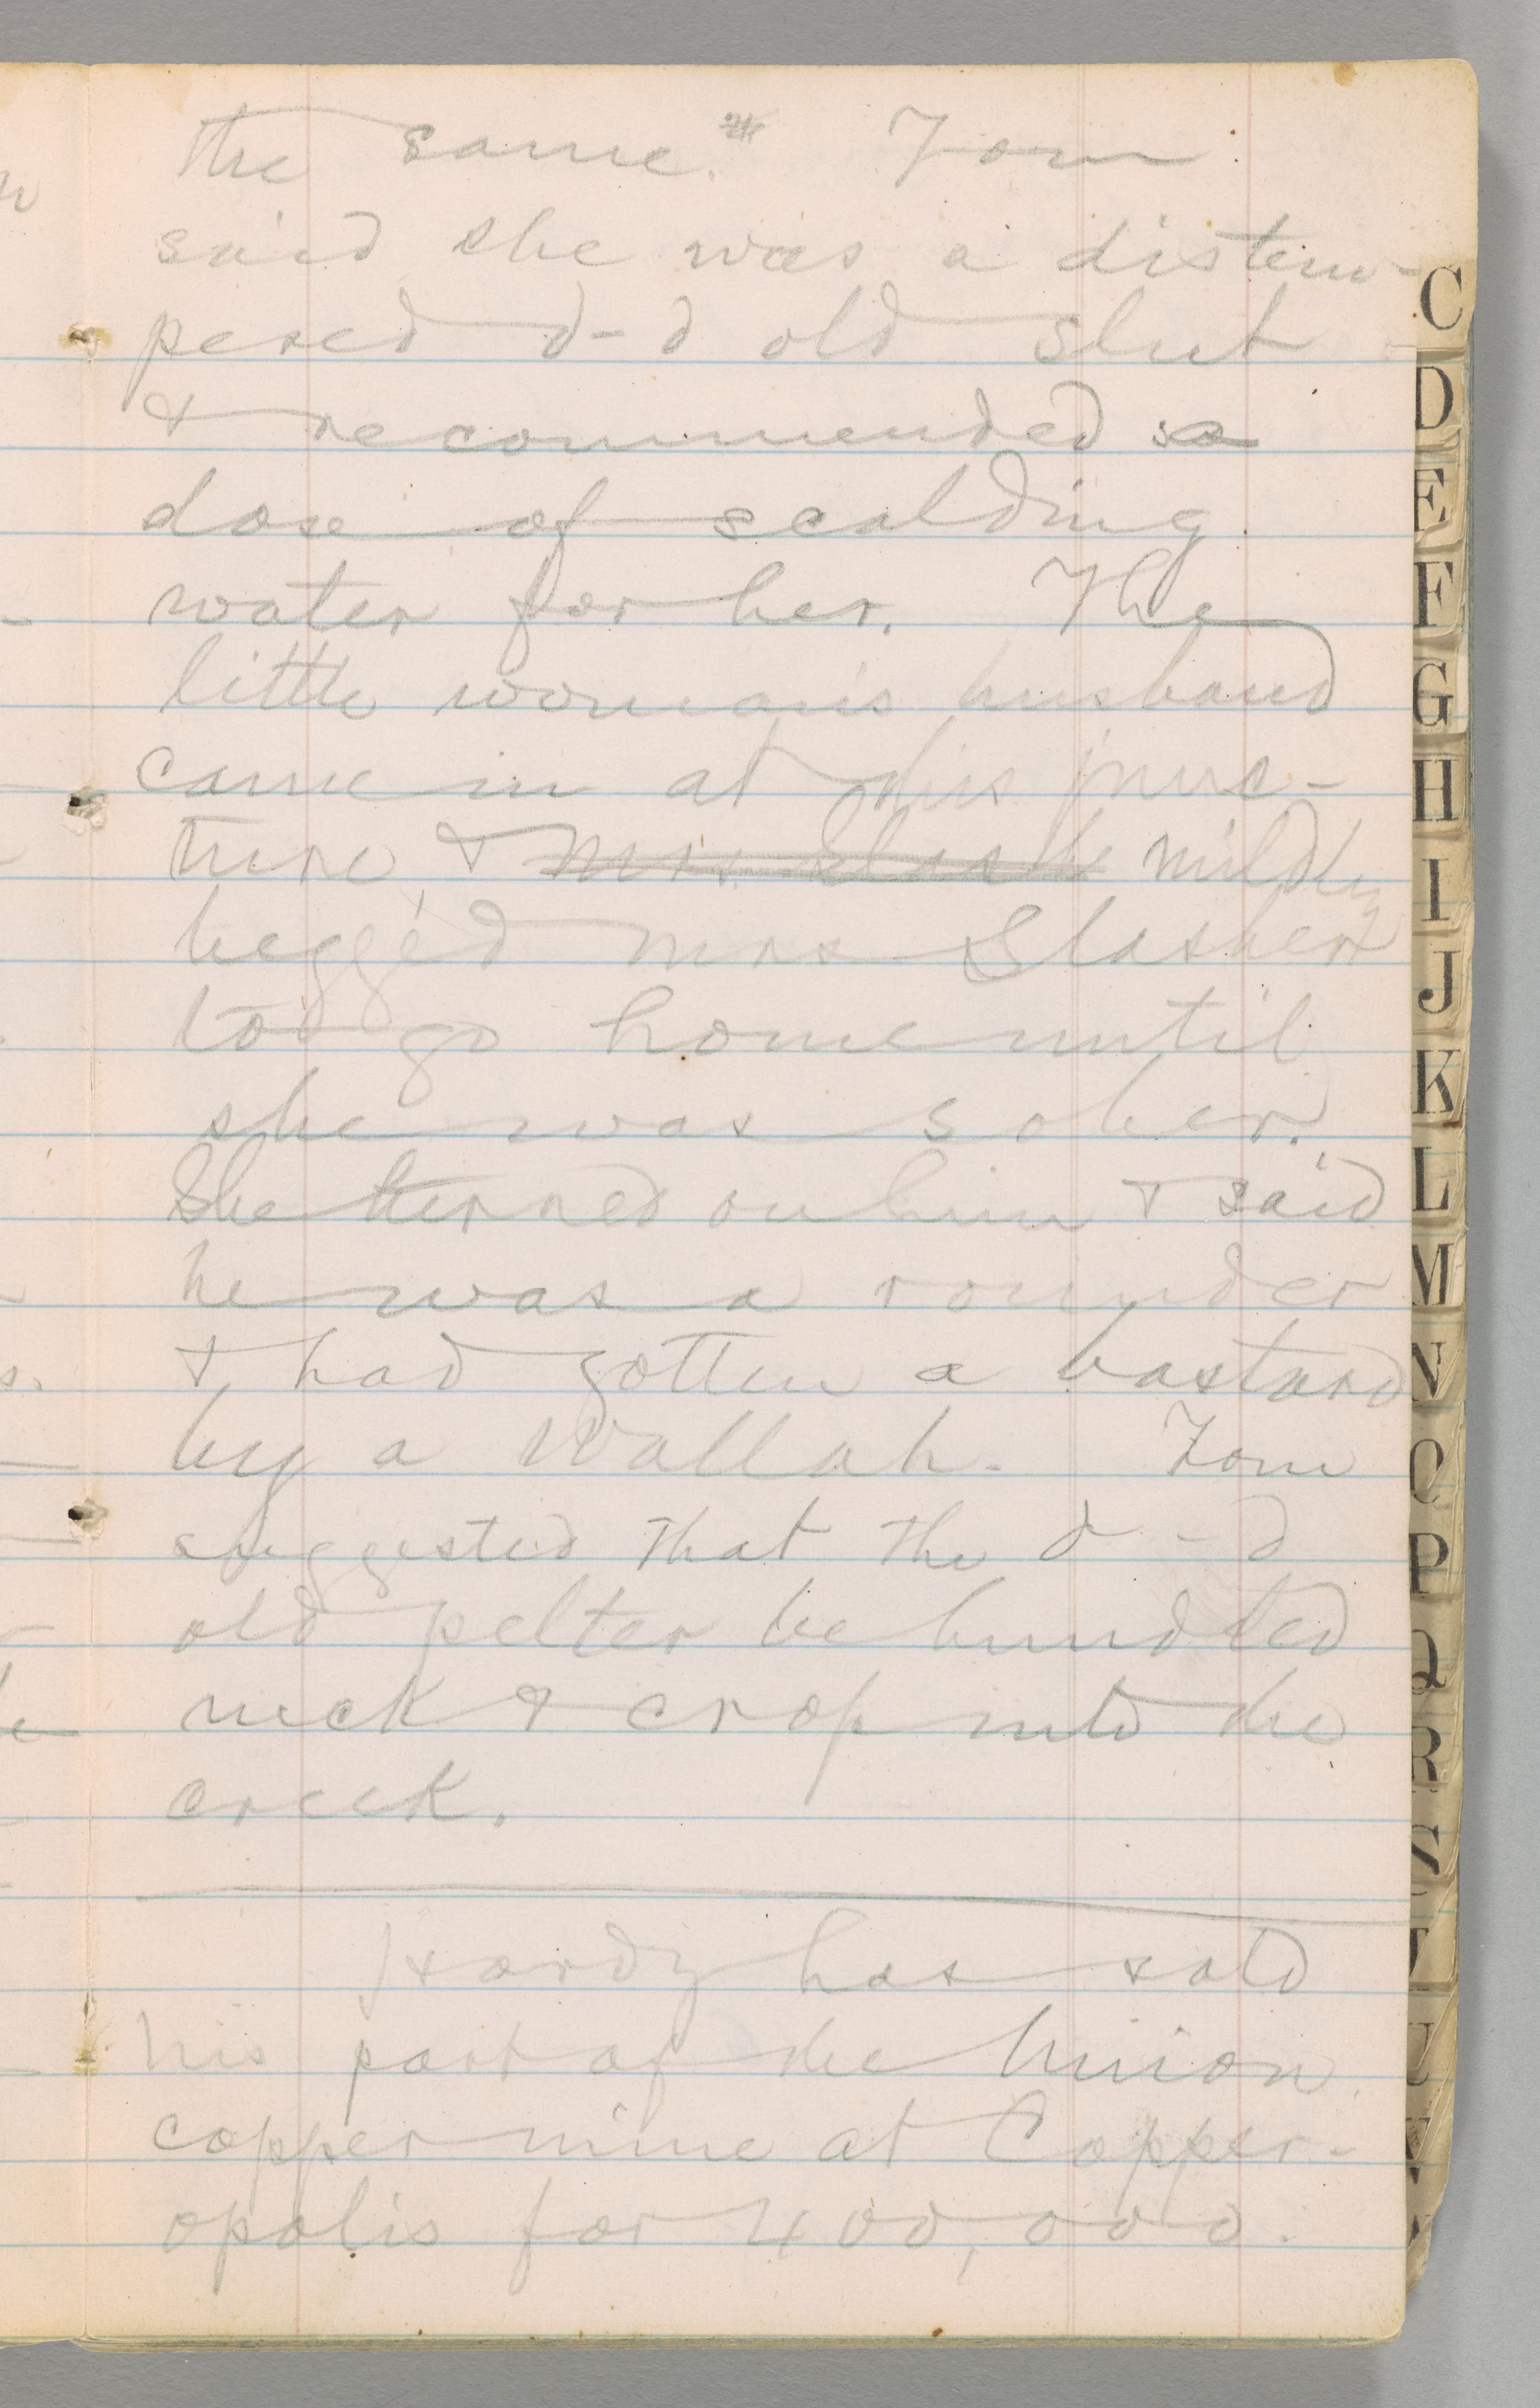 the same." Tom
said she was a distem-
pered d-d old slut
& recommended a
dose of scalding
water for her. The
little woman's husband
came in at this junc-
ture & Mrs. Slashe mildly
begged Mrs Slasher
to go home until
she was sober.
She turned on him & said
he was a rounder
& had gotten a bastard
by a Wallah. Tom
suggested that the d-d
old pelter be bundled
neck & crop into the
creek.
Hardy has sold
his part of the Union
copper mine at Copper-
opolis for 400,000.
C
D
E
F
G
H
I
J
K
L
M
N
O
P
Q
R
S
T
U
V